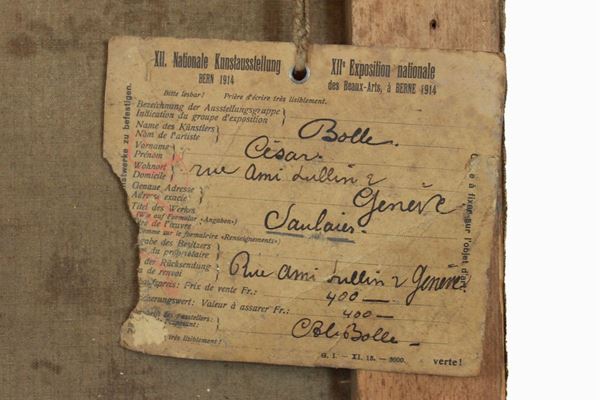 XII. Nationale Kunstausstellung
BERN 1914
XIIe Exposition nationale
des Beaux-Arts, à BERNE 1914
Bitte lesbar! Prière d'écrire très lisiblement.
Bezeichnung der Ausstellungsgruppe
Indication du groupe d'exposition
Name des Künstlers
Nom de l'artiste
Bolle.
Vorname
Prénom
César.
Wohnort
Domicile
rue Ami Lullin 2
Genaue Adresse
Adresse exacte
Genève
Titel des Werkes
auf Formular «Angaben»)
de l'œuvre
Saulaies.
comme sur le formulaire «Renseignements»)
gabe des Besitzers
du propriétaire
der Rücksendung
de renvoi
Rue Ami Lullin 2 Genève.
fspreis: Prix de vente Fr.:
400 —
cherungswert: Valeur à assurer Fr.:
400 —
des Ausstellers:
Bolle
très lisiblement!
G. I. — XI. 13. — 3000.
verte!
nstwerke zu befestigen.
e à fixer sur l'objet d'art.